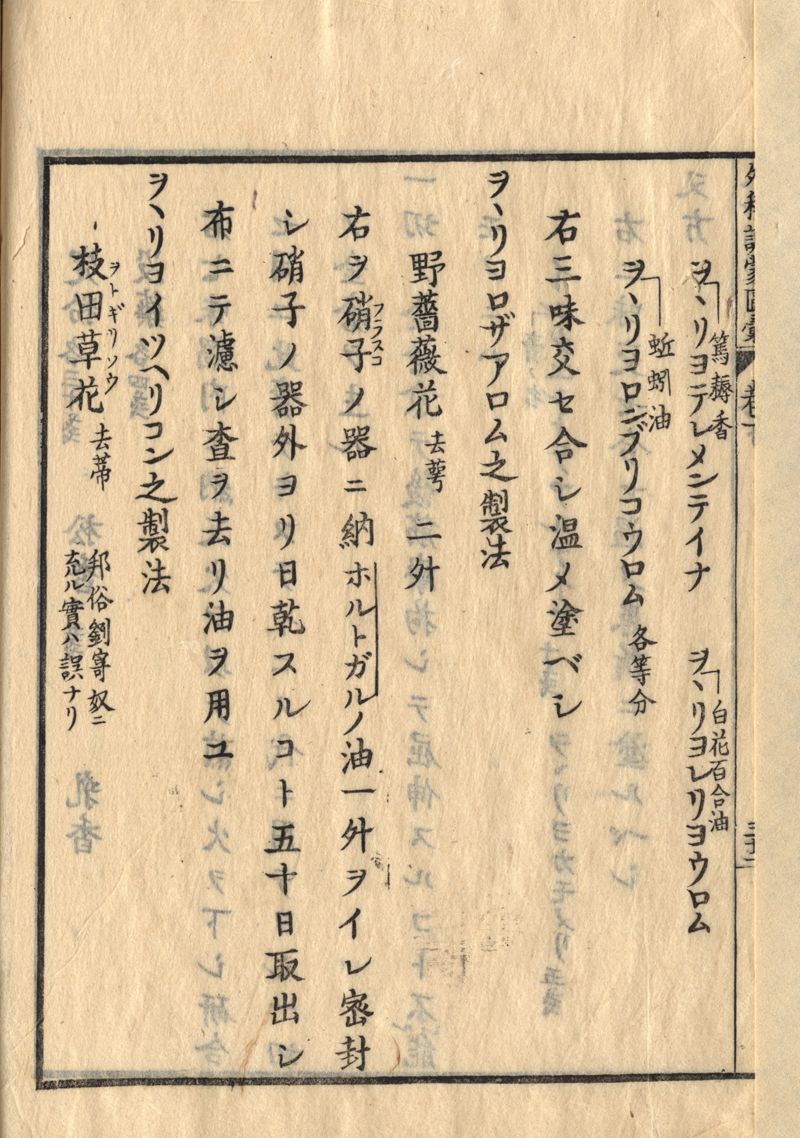 外科訓蒙図彙 巻下
ヲヽリヨテレメンテイナ 篤耨香 ヲヽリヨレリヨウロム 白花百合油
ヲヽリヨロンブリコウロム 蚯蚓油 各等分
右三味交セ合シ温メ塗ベシ
ヲヽリヨロザアロム之製法
野薔薇花 去萼 二升
右ヲ硝子フラスコノ器ニ納ホルトガルノ油一升ヲイレ密封
シ硝子ノ器外ヨリ日乾スルコト五十日取出シ
布ニテ濾シ査ヲ去リ油ヲ用ユ
ヲヽリヨイツヘリコン之製法
枝田草花ヲトギリソウ 去蒂 邦俗劉寄奴ニ
充ル實ハ誤ナリ